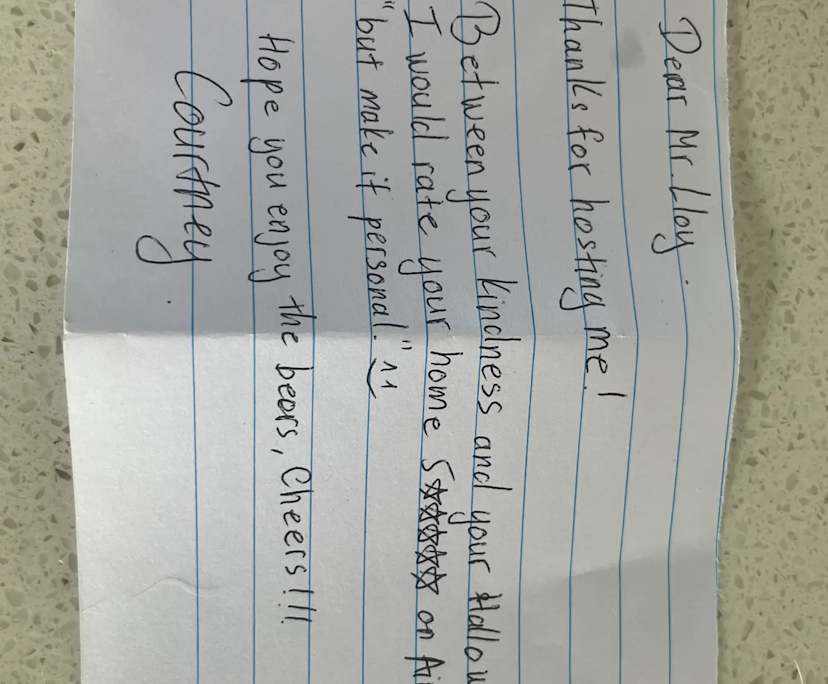 Dear Mr. Lloy.
Thanks for hosting me!
Between your kindness and your Hallow
I would rate your home 5☆☆☆☆☆ on Ai
"but make it personal." ^^
Hope you enjoy the beers, Cheers!!!
Courtney.